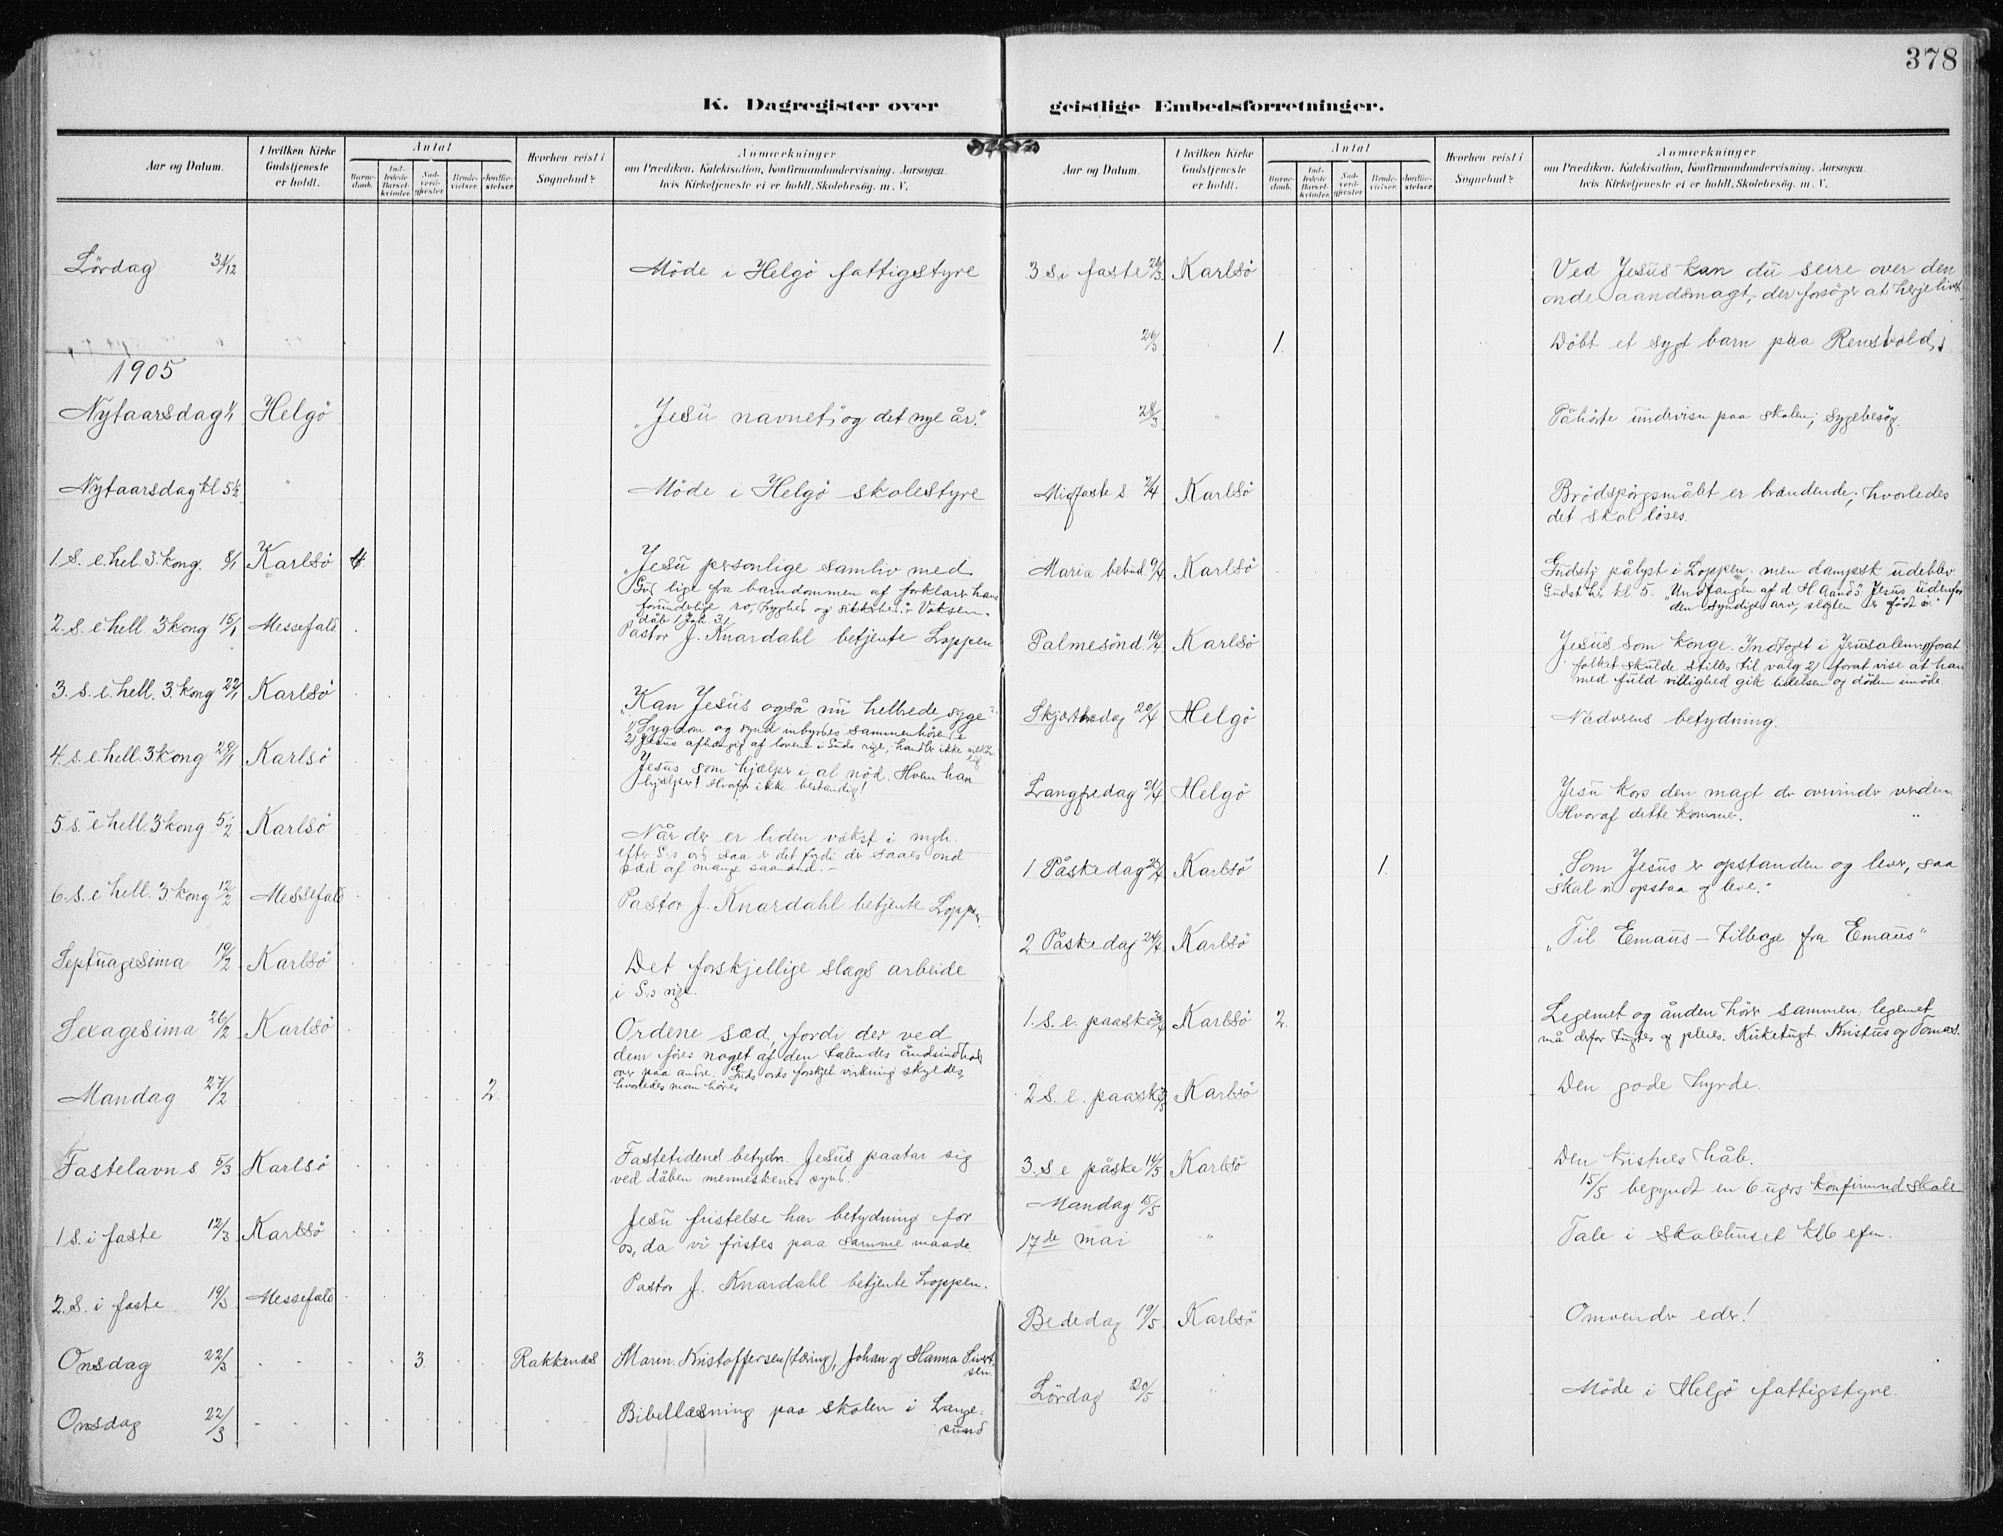 378
K. Dagregister over geistlige Embedsforretninger.
Aar og Datum.
I hvilken Kirke Gudstjeneste er holdt.
Antal
Barnedaab.
Indledede Barselkvinder.
Nadverdgjester.
Brudevielser.
Jordfæstelser.
Hvorhen reist i Sognebud?
Anmærkninger
om Prædiken, Katekisation, Konfirmandundervisning, Aarsagen,
hvis Kirketjeneste ei er holdt, Skolebesøg, m. V.
Lördag 31/12 Möde i Helgö fattigstyre
1905
Nytaarsdag 1/1 Helgö "Jesu navnet" og det nye år."
Nytaarsdag kl 5½ " Möde i Helgö skolestyre
1. S. e. hel. 3. kong. 8/1 Karlsö 4. "Jesu personlige samliv med
Gud lige fra barndommen af forklarer hans
forunderlige ro, tryghed og sikkerhed i Voksen-
dåb
2. S. e hell. 3 kong 15/1 Messefald Pastor J. Knardahl betjente Loppen
3. S. e hell. 3. kong 22/1 Karlsö "Kan Jesus også nu helbrede syge?
1) Sygdom og synd indbyrdes sammenhörende
2) Jesus afhængig af lovene i Guds rige, handler ikke
4. S. e. hell. 3 kong 29/1 Karlsö Jesus som hjælper i al nöd. Hvem han
hjælper! Hvorfor ikke bestandig!
5 S. e hell. 3 kong 5/2 Karlsö Når der er liden vækst i mgh.
efter G.s ord saa er det fordi der saaes ond
sæd af mange saamænd. -
6. S. e hell. 3 kong 12/2 Messefald Pastor J. Knardahl betjente Loppen.
Septuagesima 19/2 Karlsö Det forskjellige slags arbeide
i G.s rige.
Sexagesima 26/2 Karlsö Ordene sæd, fordi der ved
dem föres noget af den talendes åndsindhold
over paa andre. Guds ords forskjel. virkning skyldes,
hvorledes man hörer
Mandag 27/2 2.
Fastelavns 5/3 Karlsö Fastetidens betydn. Jesus paatar sig
ved dåben menneskenes synd.
1 S. i faste 12/3 Karlsö Jesu fristelse har betydning for
os, da vi fristes paa samme maade.
2. S. i faste 19/3 Messefald Pastor J. Knardahl betjente Loppen.
Onsdag 22/3 3. Rakkenæs Marin. Kristoffersen (tæring), Johan og Hanna Sivert-
sen.
Onsdag 22/3 Bibellæsning paa skolen i Lange-
sund
Aar og Datum.
I hvilken Kirke Gudstjeneste er holdt.
Antal
Barnedaab.
Indledede Barselkvinder.
Nadverdgjester.
Brudevielser.
Jordfæstelser.
Hvorhen reist i Sognebud?
Anmærkninger
om Prædiken, Katekisation, Konfirmandundervisning, Aarsagen,
hvis Kirketjeneste ei er holdt, Skolebesøg, m. V.
3 S. i faste 26/3 Karlsö Ved Jesus kan du seire over den
onde aandsmagt, der forsöger at herje livet.
26/3 1. Döbt et sygt barn paa Rensvold
28/3 " Påhörte undervisn paa skolen; sygebesög.
Midfaste s 2/4 Karlsö Brödspörgsmålet er brændende; hvorledes
det skal löses.
Maria bebud. 9/4 Karlsö Gudstj pålyst i Loppen, men dampsk udeblev
Gudst. kl 5. "Undfangen af d. H. Aand": Jesus udenfor
den syndige arv, slegten er født i."
Palmesönd. 16/4 Karlsö Jesus som konge. Indtoget i Jerusalem: 1) forat
folket skulde stilles til valg 2) forat vise at han
med fuld villighed gik lidelsen og döden imöde.
Skjærtorsdag 20/4 Helgö Nadverens betydning.
Langfredag 21/4 Helgö Jesu kors den magt der overvinder verden.
Hvoraf dette kommer.
1 Påskedag 23/4 Karlsö 1. "Som Jesus er opstanden og lever, saa
skal vi opstaa og leve."
2 Påskedag 24/4 Karlsö "Til Emaus - tilbage fra Emaus"
1. S. e. paaske 30/4 Karlsö 2. Legemet og ånden hörer sammen, legemet
må derfor tugtes og pleies. Kirketugt. Kristus og Tomas.
2 S. e. paaske 7/5 Karlsö Den gode hyrde.
3. S. e påske 14/5 Karlsö Den kristnes håb.
Mandag 15/5 15/5 begyndt en 6 ugers konfirmandskole
17de mai " Tale i skolehuset kl 6 efm.
Bededag 19/5 Karlsö Omvender eder!
Lördag 20/5 " Möde i Helgö fattigstyre.